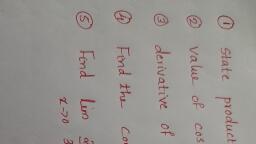 ① State product
② Value of cos
③ derivative of
④ Find the
⑤ Find lim
x→0